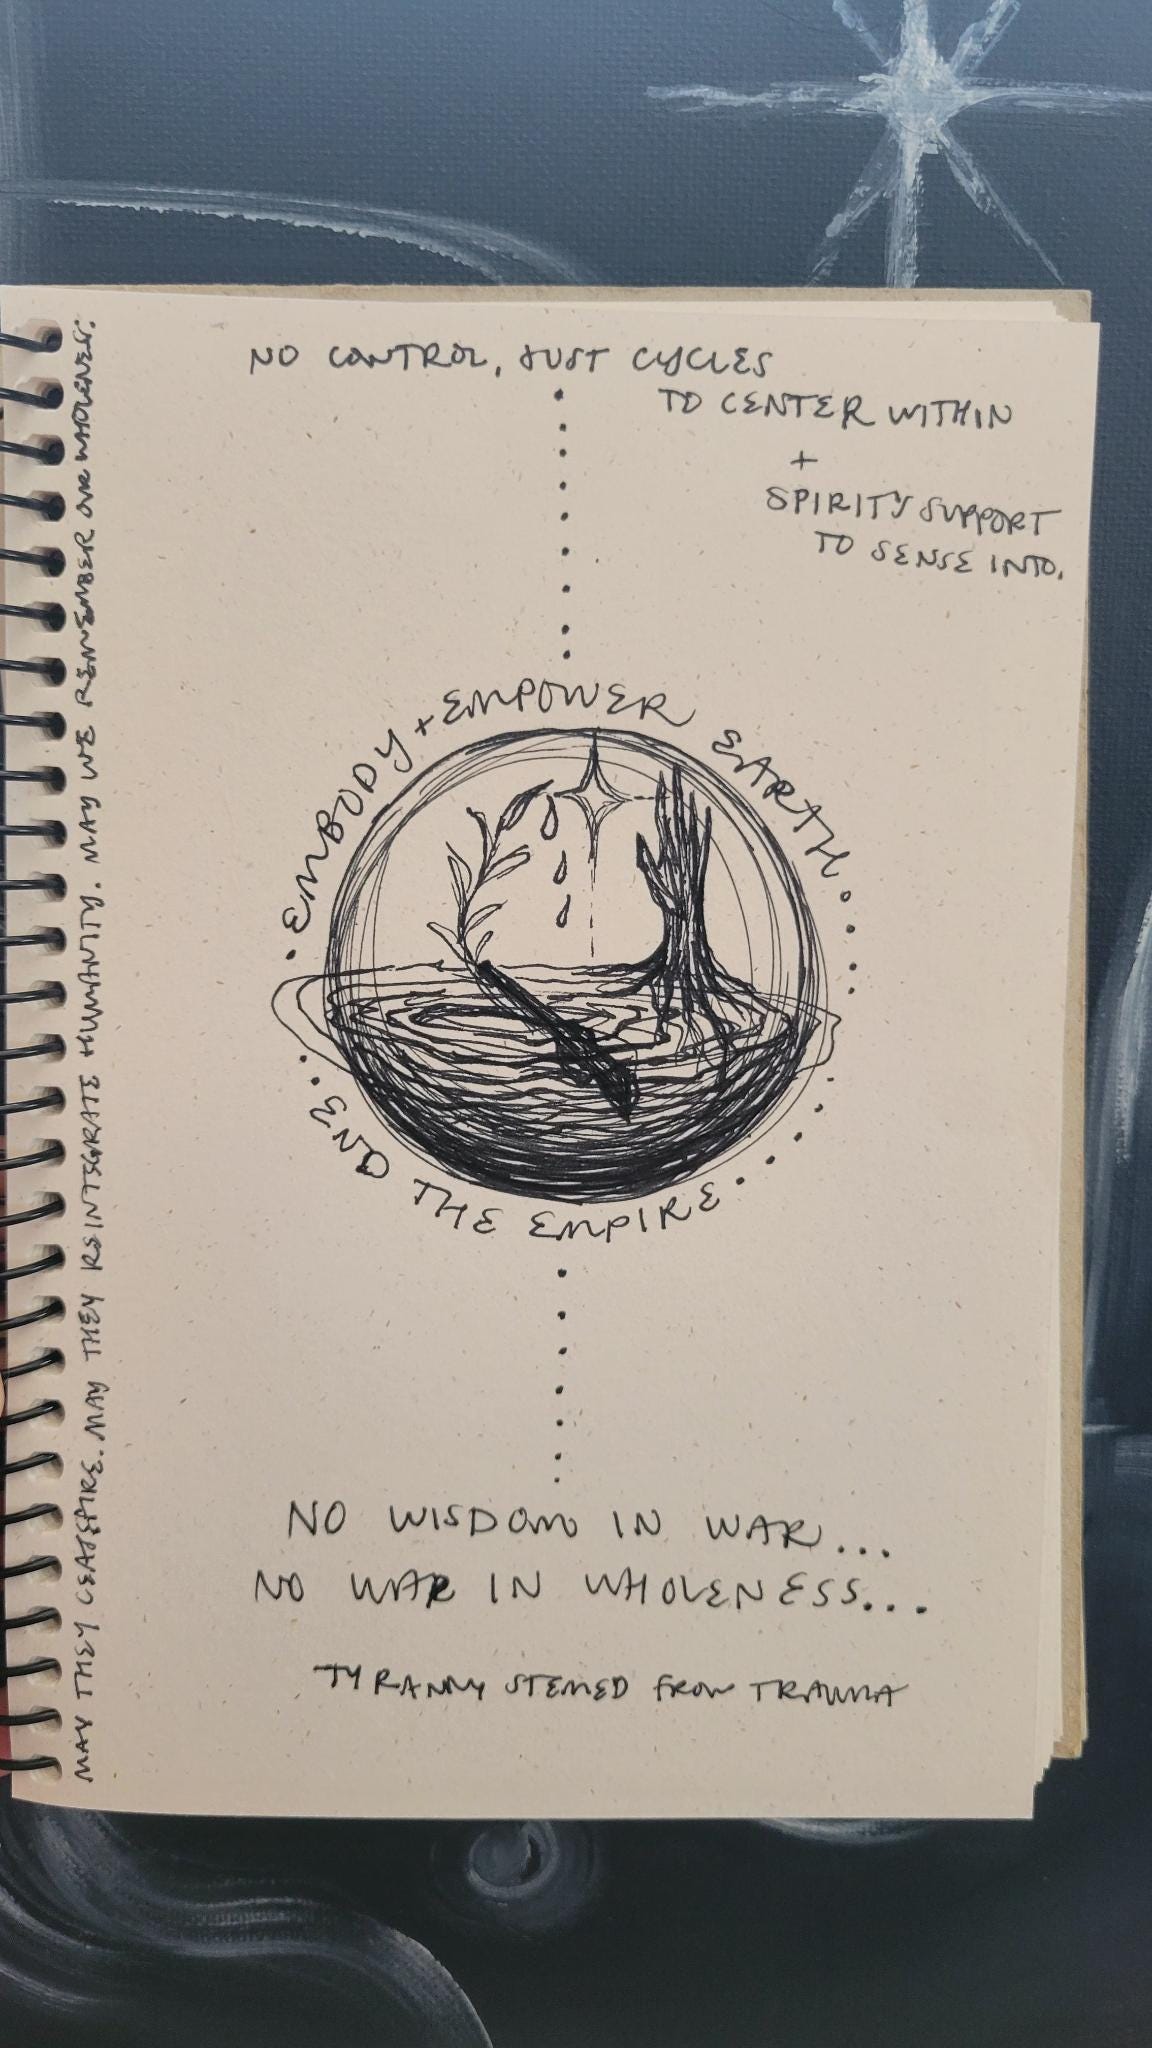 NO CONTROL, JUST CYCLES
TO CENTER WITHIN
+
SPIRITY SUPPORT
TO SENSE INTO.
• EMBODY + EMPOWER EARTH
END THE EMPIRE
NO WISDOM IN WAR...
NO WAR IN WHOLENESS...
TYRANNY STEMED FROM TRAUMA
MAY THEY CEASEFIRE. MAY THEY REINTEGRATE HUMANITY. MAY WE REMEMBER OUR WHOLENESS.